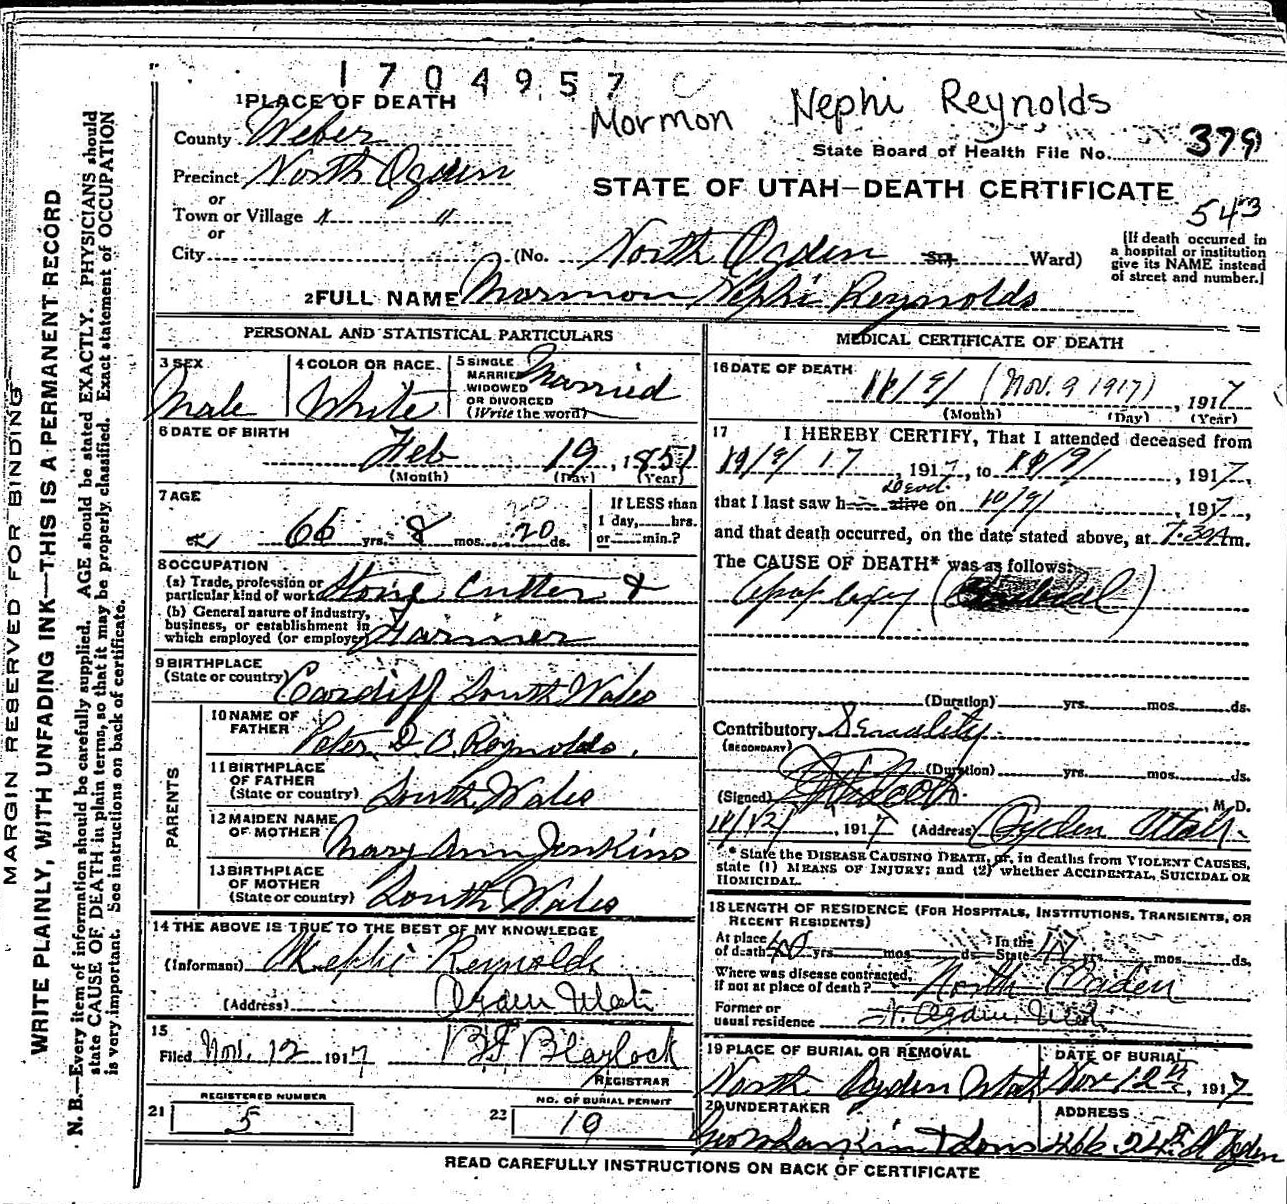 1704957
Mormon Nephi Reynolds
1 PLACE OF DEATH
County Weber
State Board of Health File No. 379
Precinct North Ogden
STATE OF UTAH—DEATH CERTIFICATE
or
Town or Village " "
543
or
City (No. North Ogden St., Ward)
[If death occurred in
a hospital or institution
give its NAME instead
of street and number.]
2 FULL NAME Marmon Nephi Reynolds
PERSONAL AND STATISTICAL PARTICULARS
3 SEX
Male
4 COLOR OR RACE
White
5 SINGLE
MARRIED
WIDOWED
OR DIVORCED
(Write the word)
Married
6 DATE OF BIRTH
Feb 19, 1851
(Month) (Day) (Year)
7 AGE
66 yrs. 8 mos. 20 ds.
20
If LESS than
1 day, hrs.
or min.?
8 OCCUPATION
(a) Trade, profession or
particular kind of work Stone Cutter &
(b) General nature of industry,
business, or establishment in
which employed (or employer) Farmer
9 BIRTHPLACE
(State or country) Cardiff South Wales
PARENTS
10 NAME OF
FATHER Peter D B. Reynolds.
11 BIRTHPLACE
OF FATHER
(State or country) South Wales
12 MAIDEN NAME
OF MOTHER Mary Ann Jenkins
13 BIRTHPLACE
OF MOTHER
(State or country) South Wales
14 THE ABOVE IS TRUE TO THE BEST OF MY KNOWLEDGE
(Informant) Nephi Reynolds
(Address) Ogden Utah
15
Filed Nov. 12 1917 Blaylock
REGISTRAR
21 REGISTERED NUMBER
5
22 NO. OF BURIAL PERMIT
19
MEDICAL CERTIFICATE OF DEATH
16 DATE OF DEATH
11/9/ (Nov. 9 1917), 1917
(Month) (Day) (Year)
17 I HEREBY CERTIFY, That I attended deceased from
17, 1917, to 11/9/, 1917,
dead
that I last saw h alive on 1917,
and that death occurred, on the date stated above, at 7.30A m.
The CAUSE OF DEATH* was as follows:
Apoplexy
(Duration) yrs. mos. ds.
Contributory Senility
(SECONDARY)
(Duration) yrs. mos. ds.
(Signed) M. D.
11/12/, 1917 (Address) Ogden Utah.
* State the DISEASE CAUSING DEATH, or, in deaths from VIOLENT CAUSES,
state (1) MEANS OF INJURY; and (2) whether ACCIDENTAL, SUICIDAL OR
HOMICIDAL.
18 LENGTH OF RESIDENCE (FOR HOSPITALS, INSTITUTIONS, TRANSIENTS, OR
RECENT RESIDENTS)
At place In the
of death 40 yrs. mos. ds. State 47 yrs. mos. ds.
Where was disease contracted,
if not at place of death? North Ogden
Former or
usual residence N. Ogden, Utah
19 PLACE OF BURIAL OR REMOVAL
North Ogden Utah
DATE OF BURIAL
Nov 12th, 1917
20 UNDERTAKER
Geo W Larkin & Sons
ADDRESS
466. 24th St Ogden
READ CAREFULLY INSTRUCTIONS ON BACK OF CERTIFICATE
MARGIN RESERVED FOR BINDING
WRITE PLAINLY, WITH UNFADING INK—THIS IS A PERMANENT RECORD
N. B.—Every item of information should be carefully supplied. AGE should be stated EXACTLY. PHYSICIANS should
state CAUSE OF DEATH in plain terms, so that it may be properly classified. Exact statement of OCCUPATION
is very important. See instructions on back of certificate.